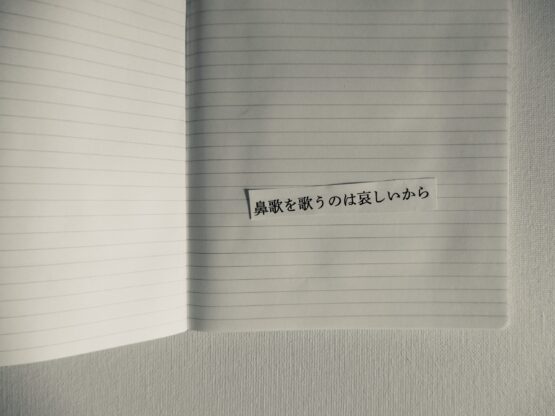 鼻歌を歌うのは哀しいから